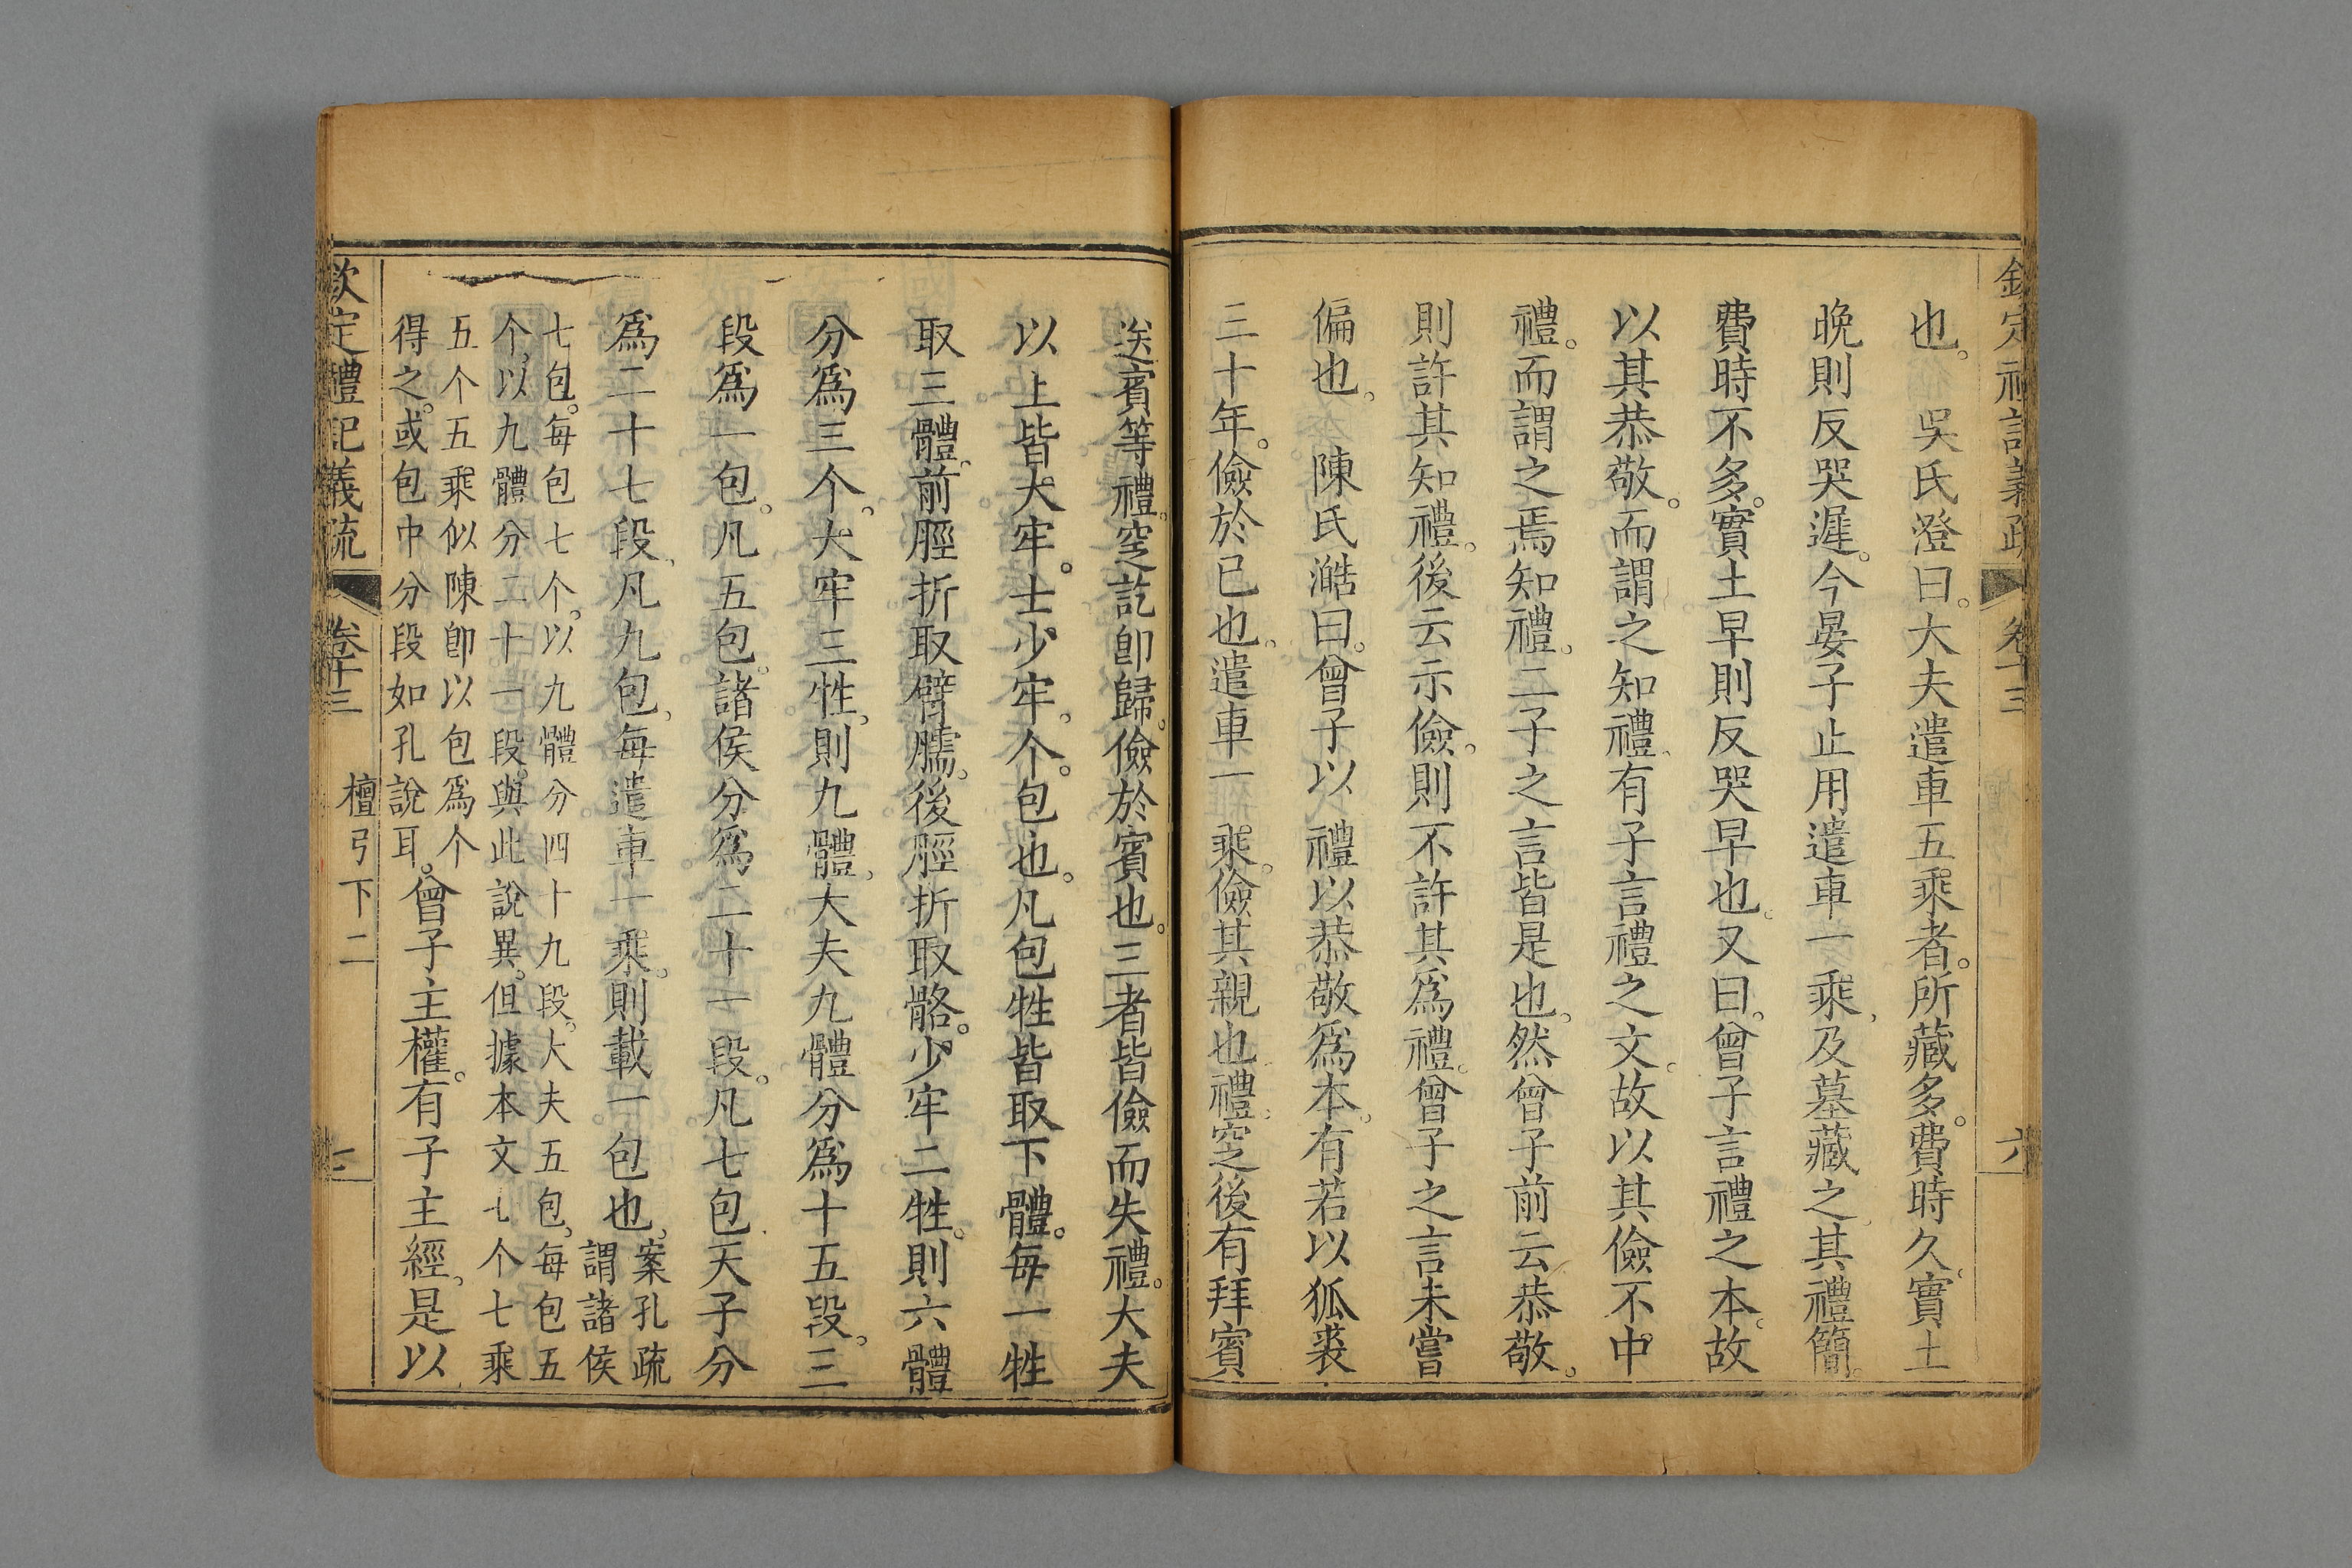 欽定禮記義疏 卷十三 六
也。 吳氏澄曰。大夫遣車五乘者。所藏多。費時久。實土
晚則反哭遲。今晏子止用遣車一乘。及墓藏之。其禮簡。
費時不多。實土早則反哭早也。又曰。曾子言禮之本。故
以其恭敬。而謂之知禮。有子言禮之文。故以其儉不中
禮。而謂之焉知禮。二子之言皆是也。然曾子前云恭敬。
則許其知禮。後云示儉。則不許其爲禮。曾子之言未嘗
偏也。 陳氏澔曰。曾子以禮以恭敬爲本。有若以狐裘
三十年。儉於已也。遣車一乘。儉其親也。禮。窆後有拜賓
送賓等禮。窆訖卽歸。儉於賓也。三者皆儉而失禮。大夫
以上皆大牢。士少牢。个。包也。凡包牲皆取下體。每一牲
取三體。前脛折取臂臑。後脛折取骼。少牢二牲。則六體
分爲三个。大牢三牲。則九體。大夫九體分爲十五段。三
段爲一包。凡五包。諸侯分爲二十一段。凡七包。天子分
爲二十七段。凡九包。每遣車一乘。則載一包也。案孔疏
謂諸侯
七包。每包七个。以九體分四十九段。大夫五包。每包五
个。以九體分二十一段。與此說異。但據本文七个七乘
五个五乘似陳卽以包爲个
得之。或包中分段如孔說耳。曾子主權。有子主經。是以
欽定禮記義疏 卷十三 檀弓下二